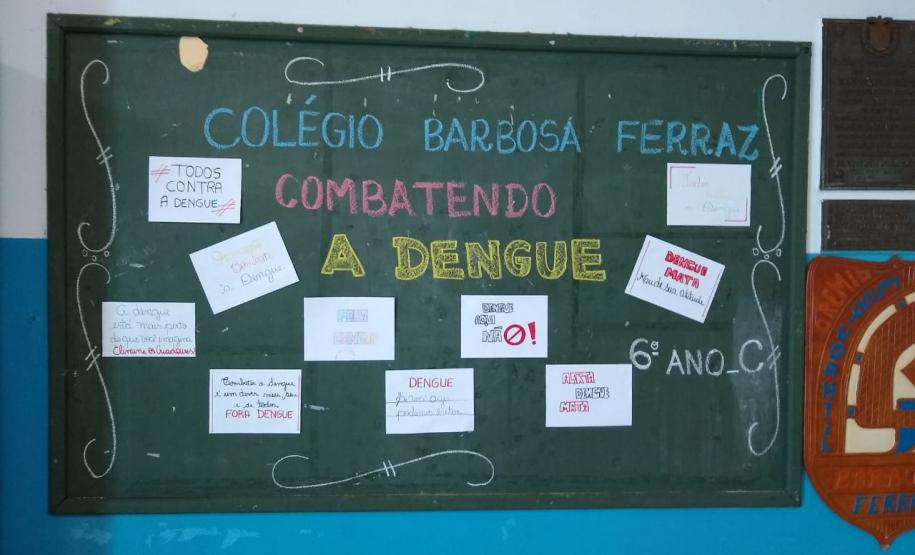 COLÉGIO BARBOSA FERRAZ
COMBATENDO
A DENGUE
TODOS
CONTRA
A DENGUE
Todos
a Dengue
Barbosa
a Dengue
DENGUE
MATA
Mude sua atitude
A dengue
está mais perto
do que você imagina
Elimine os Criadouros
FERA
DENGUE
DENGUE
AQUI
NÃO!
6º ANO_C
Combater a dengue
é um dever meu, seu
e de todos
FORA DENGUE
DENGUE
podemos evitar
ALERTA
DENGUE
MATA
FERRA